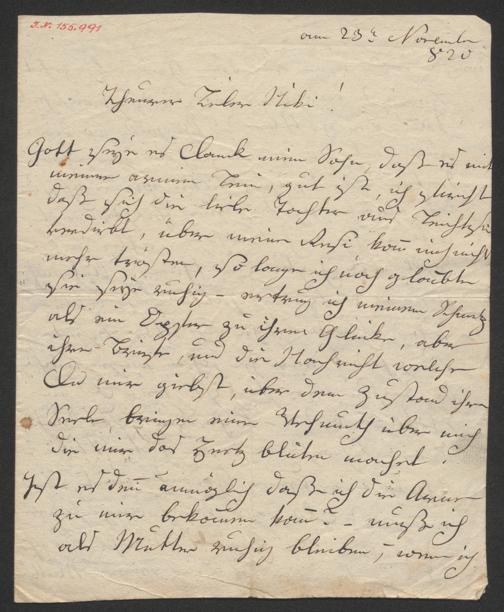 I.N. 155.991
am 23th November
820
Theurer Lieber Niki!
Gott seÿe es Danck mein Sohn, daß es mit
meinen armen Toni, gut ist, ich
daß sich die liebe Tochter aus Leichtsin
verdirbt, über meine Resi, kan mich nicht
mehr trösten, so lange ich noch glaubte
sie seÿe ruhig – ertrug ich meinen Schmerz
als ein Opfer zu ihren Glücke, aber
ihre Briefe, und die Nachricht welche
Du mir giebst, über den Zustand ihrer
Seele, bringen eine Wehmuth über mich
die mir das Hertz blüten machet!
Ist es den unmöglich daß ich die Arme
zu mir bekommen kan? – muße ich
als Mutter ruhig bleiben, wenn ich